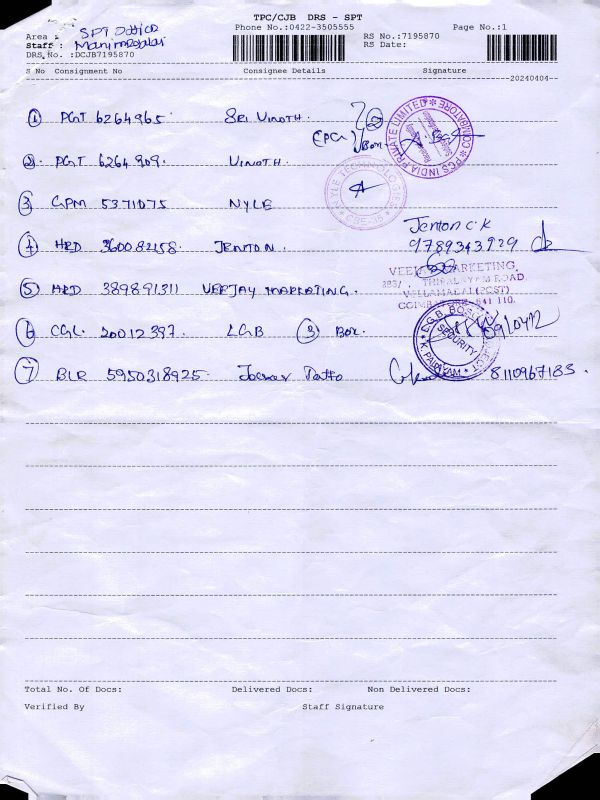 TPC/CJB DRS - SPT
Phone No.:0422-3505555 Page No.:1
Area : SPT Office
Staff :
RS No.:7195870
RS Date:
DRS No. :DCJB7195870
S No Consignment No Consignee Details Signature
20240404
① PGT 6264965 SRI VINOTH.
② PGT 6264909. VINOTH.
PCS INDIA PRIVATE LIMITED * COIMBATORE *
③ GPM 5371075 NYLE
NYLE TECHNOLOGIES * CBE-35 *
④ HRD 360082158 JENTON. Jenton C.K
9789343929
⑤ HRD 389891311 VEEJAY MARKETING. VEEJAY MARKETING,
COIMBATORE - 641 110.
⑥ CGL 20012397. LGB ③ Box.
SECURITY
⑦ BLR 5950318925. 8110967183.
Total No. Of Docs: Delivered Docs: Non Delivered Docs:
Verified By Staff Signature